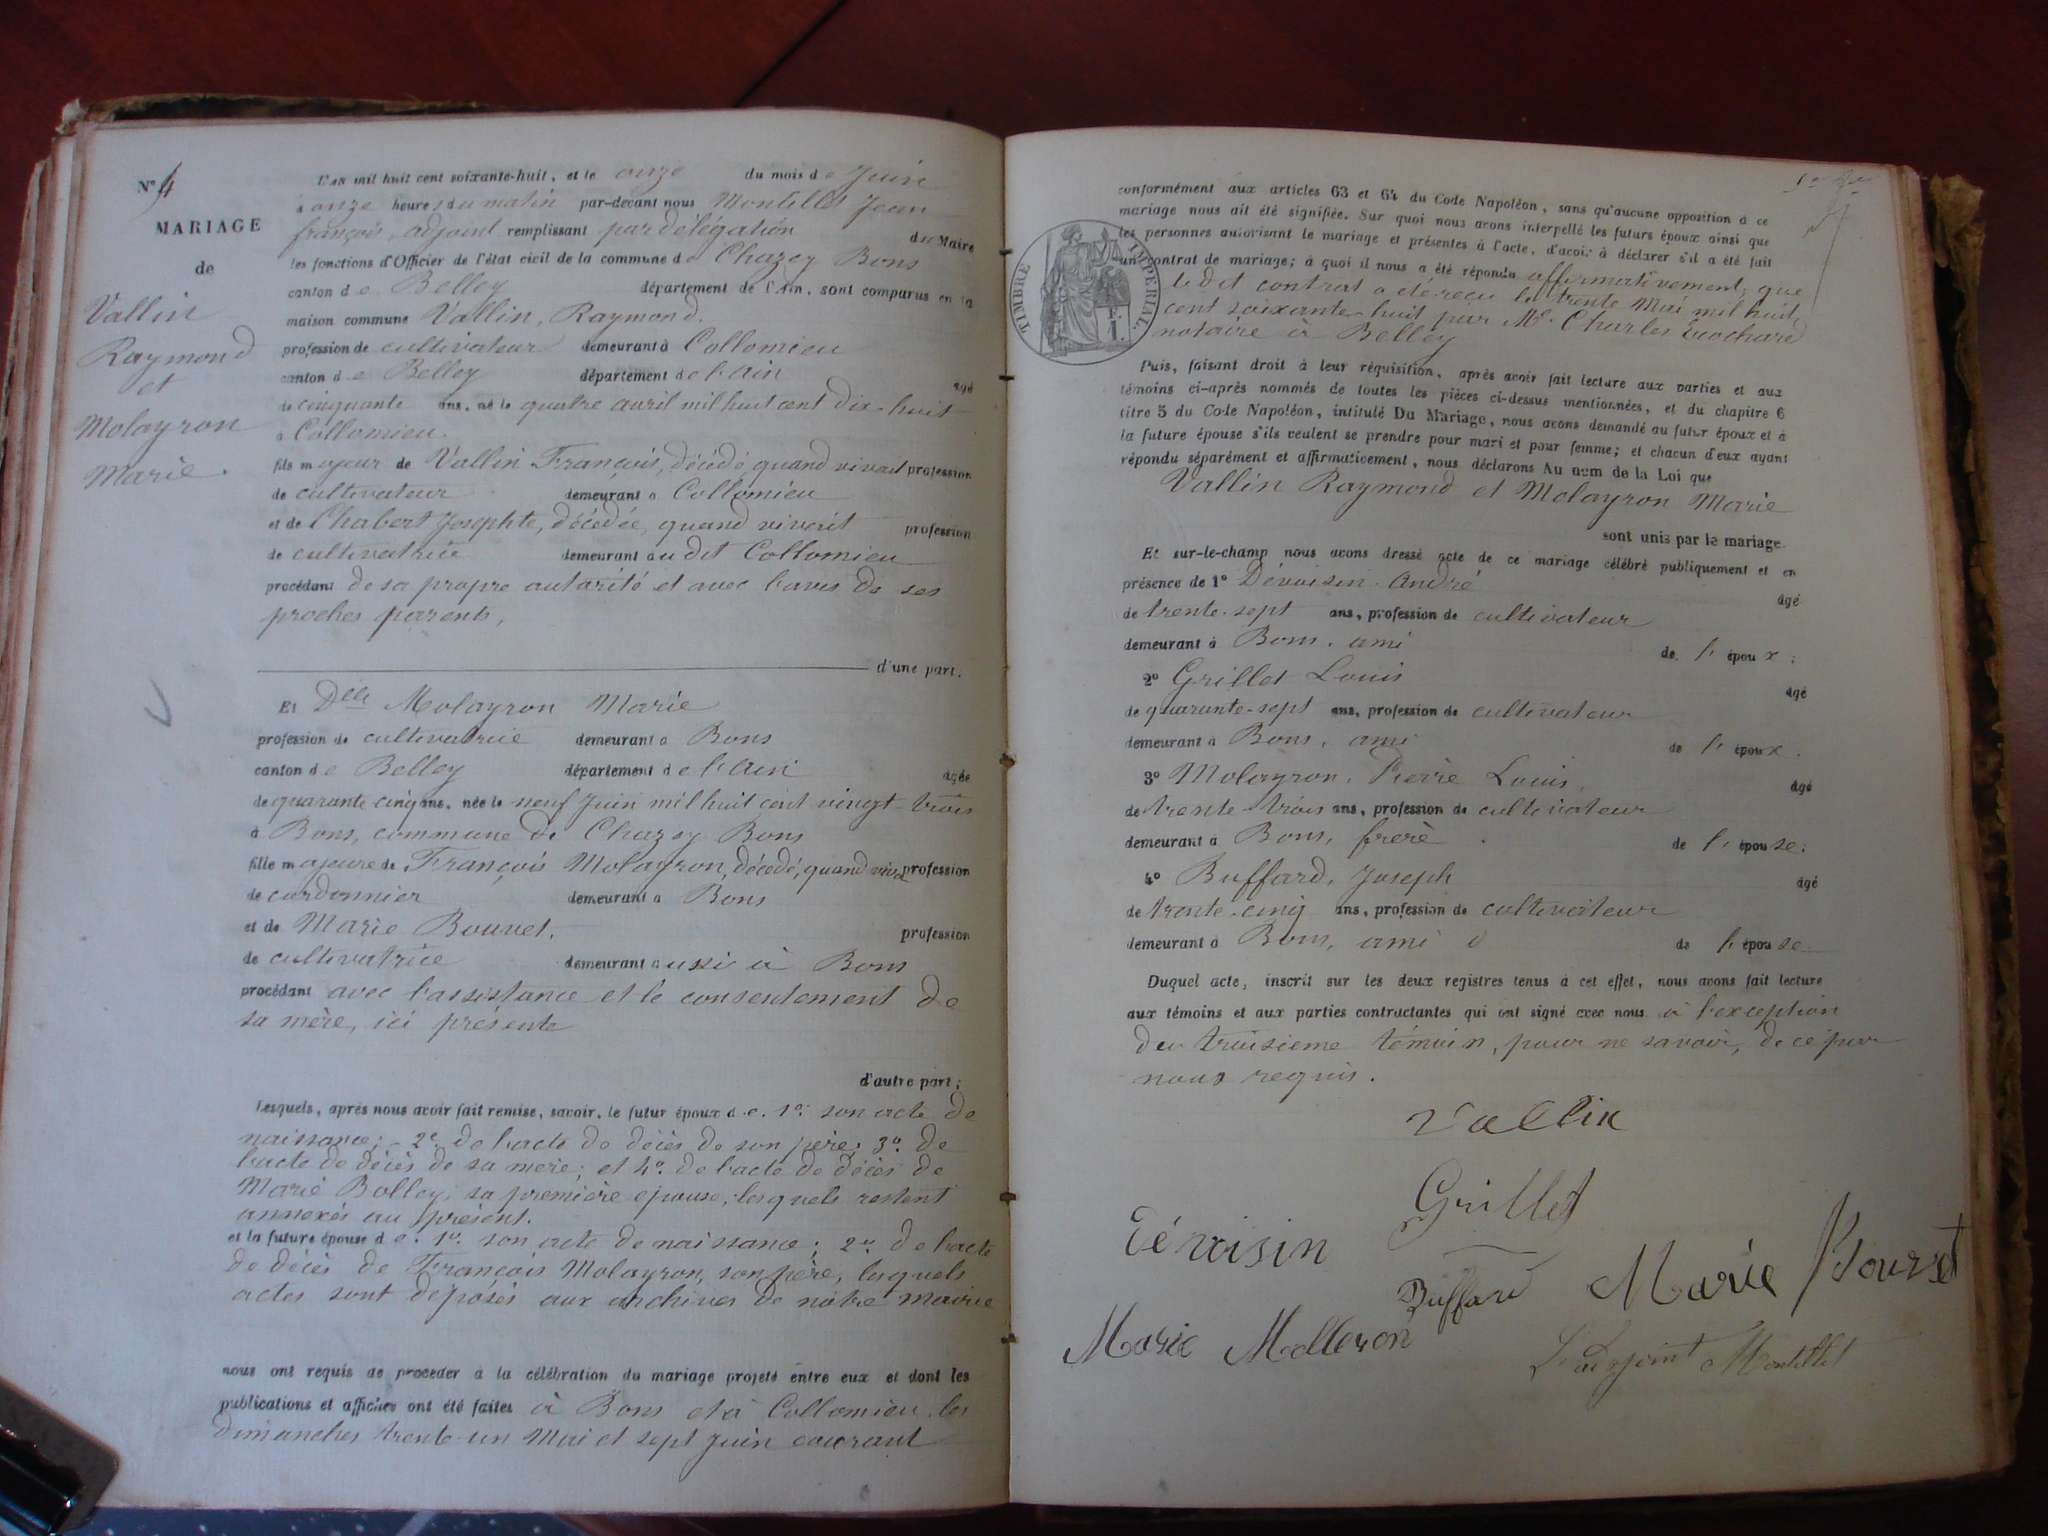 N° 4
MARIAGE
de
Vallin
Raymond
et
Molayron
Marie.
L'an mil huit cent soixante-huit, et le onze du mois de Juin
à onze heures du matin par-devant nous Montillet Jean
françois, adjoint remplissant par délégation du Maire
les fonctions d'Officier de l'état civil de la commune de Chazey Bons
canton de Belley département de l'Ain, sont comparus en la
maison commune Vallin, Raymond.
profession de cultivateur demeurant à Collomieu
canton de Belley département de l'Ain âgé
de cinquante ans, né le quatre avril mil huit cent dix-huit
à Collomieu.
fils majeur de Vallin François, décédé, quand vivait profession
de cultivateur demeurant à Collomieu
et de Chabert Josephte, décédée, quand vivait profession
de cultivatrice demeurant audit Collomieu
procédant de sa propre autorité et avec l'avis de ses
proches parents,
d'une part.
Et Delle Molayron Marie
profession de cultivatrice demeurant à Bons
canton de Belley département de l'Ain âgée
de quarante cinq ans, née le neuf Juin mil huit cent vingt-trois
à Bons, commune de Chazey Bons
fille majeure de François Molayron, décédé, quand vivait profession
de cordonnier demeurant à Bons
et de Marie Bouvet. profession
de cultivatrice demeurant aussi à Bons
procédant avec l'assistance et le consentement de
sa mère, ici présente
d'autre part;
Lesquels, après nous avoir fait remise, savoir, le futur époux de. 1° son acte de
naissance; - 2° de l'acte de décès de son père; 3° de
l'acte de décès de sa mère; et 4° de l'acte de décès de
Marie Bolley, sa première épouse, lesquels restent
annexés au présent.
et la future épouse de. 1° son acte de naissance; 2° de l'acte
de décès de François Molayron, son père, lesquels
actes sont déposés aux archives de nôtre mairie
nous ont requis de procéder à la célébration du mariage projeté entre eux et dont les
publications et affiches ont été faites à Bons et à Collomieu les
dimanches trente-un Mai et sept Juin courant
conformément aux articles 63 et 64 du Code Napoléon, sans qu'aucune opposition à ce
mariage nous ait été signifiée. Sur quoi nous avons interpellé les futurs époux ainsi que
les personnes autorisant le mariage et présentes à l'acte, d'avoir à déclarer s'il a été fait
un contrat de mariage; à quoi il nous a été répondu affirmativement, que
le dit contrat a été reçu le trente Mai mil huit
cent soixante-huit par Me Charles
notaire à Belley
TIMBRE IMPERIAL.
Puis, faisant droit à leur réquisition, après avoir fait lecture aux parties et aux
témoins ci-après nommés de toutes les pièces ci-dessus mentionnées, et du chapitre 6
titre 5 du Code Napoléon, intitulé Du Mariage, nous avons demandé au futur époux et à
la future épouse s'ils veulent se prendre pour mari et pour femme; et chacun d'eux ayant
répondu séparément et affirmativement, nous déclarons Au nom de la Loi que
Vallin Raymond et Molayron Marie
sont unis par le mariage.
Et sur-le-champ nous avons dressé acte de ce mariage célébré publiquement et en
présence de 1° Dévoisin André âgé
de trente-sept ans, profession de cultivateur
demeurant à Bons, ami de l'époux;
2° Grillet Louis âgé
de quarante-sept ans, profession de cultivateur
demeurant à Bons, ami de l'époux.
3° Molayron, Pierre Louis, âgé
de trente-trois ans, profession de cultivateur
demeurant à Bons, frère de l'épouse;
4° Buffard, Joseph âgé
de trente-cinq ans, profession de cultivateur
demeurant à Bons, ami de l'épouse
Duquel acte, inscrit sur les deux registres tenus à cet effet, nous avons fait lecture
aux témoins et aux parties contractantes qui ont signé avec nous à l'exception
du troisième témoin, pour ne savoir, de ce par
nous requis.
Vallin
Grillet
Dévoisin
Buffard
Marie Bouvet
Marie Molleron
L'adjoint Montillet